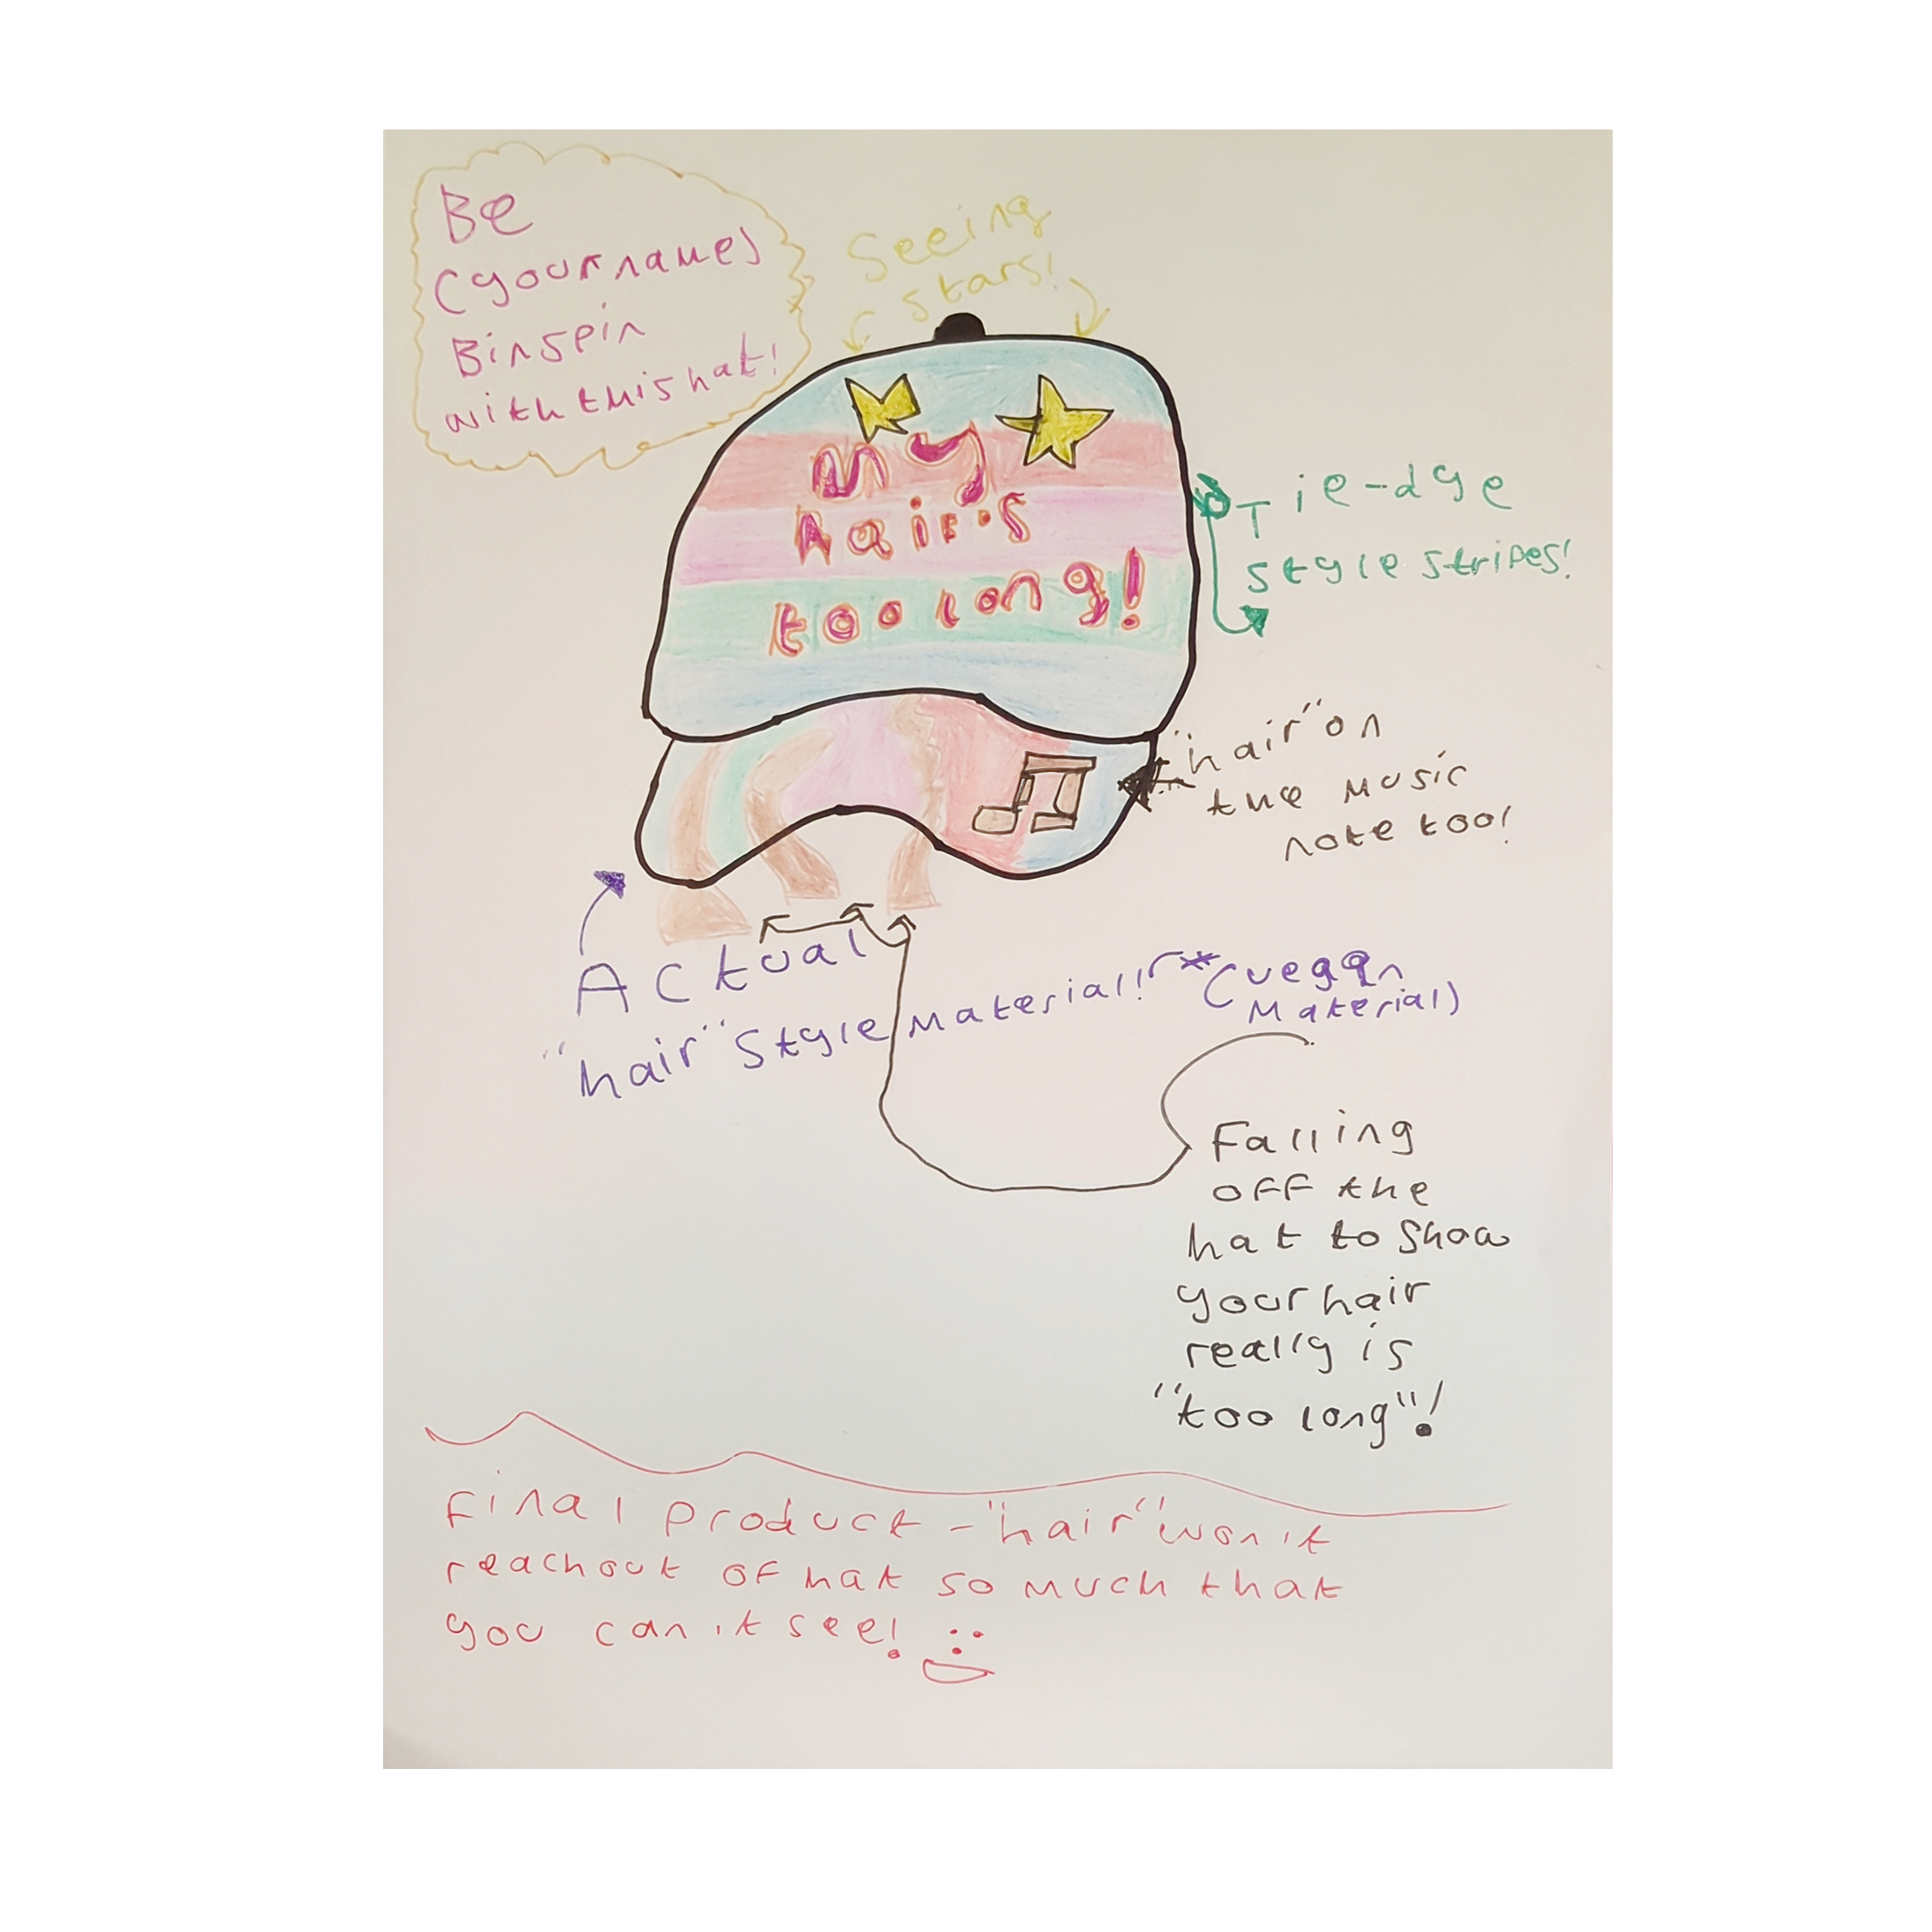 Be
(your name)
Binspin
with this hat!
Seeing
stars!
My
hair's
too long!
Tie-dye
style stripes!
"hair" on
the music
note too!
Actual
"hair" style material! *(vegan
material)
Falling
off the
hat to show
your hair
really is
"too long"!
Final product - "hair" won't
reach out of hat so much that
you can't see!